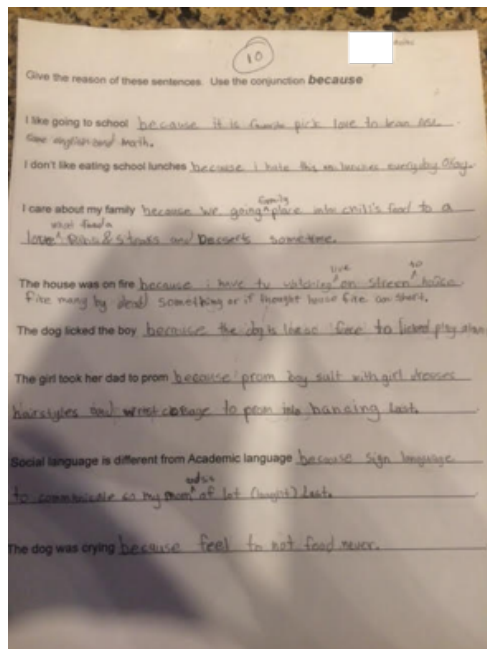 10
Give the reason of these sentences. Use the conjunction because
I like going to school because it is favorite pick love to learn ASL
some english and math.
I don't like eating school lunches because i hate this everyday okay.
family
I care about my family because we going place into chill's food to a
what food a
love Ribs & Steaks and Desserts sometime.
live so
The house was on fire because i have tv watching on street house
fire many by dead something or if thought house fire on short.
The dog licked the boy because the dog is face to licked play
The girl took her dad to prom because prom boy suit with girl dresses
hairstyles and wrist to prom into last.
Social language is different from Academic language because sign language
to communicate so my mom of lot last.
The dog was crying because feel to not food never.